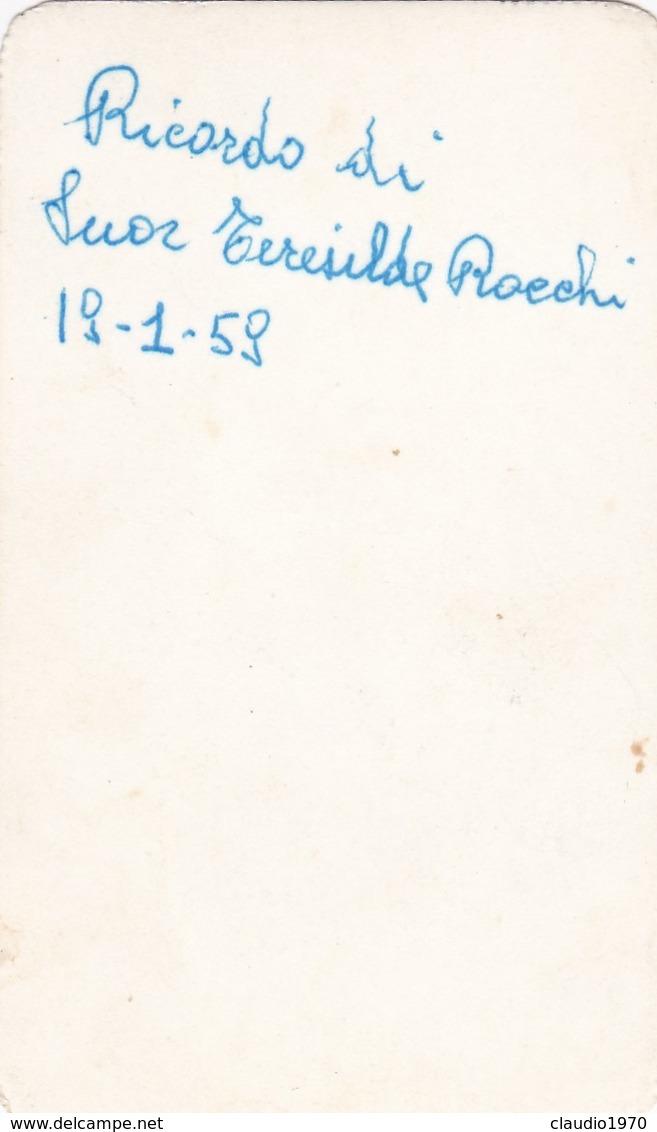 Ricordo di
Suor Teresilde Rocchi
19-1-59
delcampe.net
claudio1970